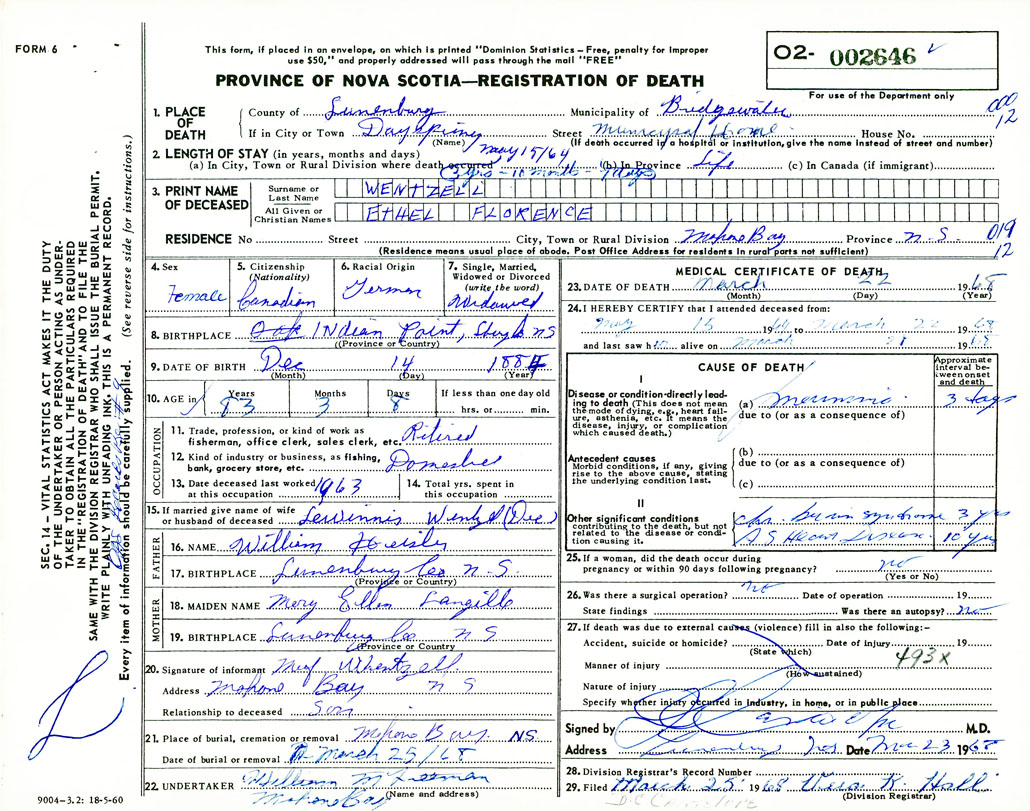 FORM 6
This form, if placed in an envelope, on which is printed "Dominion Statistics – Free, penalty for improper
use $50," and properly addressed will pass through the mail "FREE"
PROVINCE OF NOVA SCOTIA—REGISTRATION OF DEATH
02- 002646
For use of the Department only
1. PLACE OF DEATH
County of Lunenburg Municipality of Bridgewater 000 12
If in City or Town Dayspring Street Municipal Home House No.
(Name) (If death occurred in a hospital or institution, give the name instead of street and number)
2. LENGTH OF STAY (in years, months and days) May 15/64
(a) In City, Town or Rural Division where death occurred (b) In Province Life (c) In Canada (if immigrant)
(3 yrs - 10 months - 7 days)
3. PRINT NAME OF DECEASED
Surname or Last Name WENTZELL
All Given or Christian Names ETHEL FLORENCE
RESIDENCE No Street City, Town or Rural Division Mahone Bay Province N.S. 019 12
(Residence means usual place of abode. Post Office Address for residents in rural parts not sufficient)
4. Sex Female
5. Citizenship (Nationality) Canadian
6. Racial Origin German
7. Single, Married, Widowed or Divorced (write the word) Widowed
8. BIRTHPLACE Indian Point, NS
(Province or Country)
9. DATE OF BIRTH Dec 14 1884
(Month) (Day) (Year)
10. AGE in Years 83 Months 3 Days 8 If less than one day old
hrs. or min.
OCCUPATION
11. Trade, profession, or kind of work as
fisherman, office clerk, sales clerk, etc. Retired
12. Kind of industry or business, as fishing,
bank, grocery store, etc. Domestic
13. Date deceased last worked at this occupation 1963
14. Total yrs. spent in this occupation
15. If married give name of wife
or husband of deceased Lewinnis Wentzel (Dec)
FATHER
16. NAME William Heisler
17. BIRTHPLACE Lunenburg Co N.S.
(Province or Country)
MOTHER
18. MAIDEN NAME Mary Ellen Langille
19. BIRTHPLACE Lunenburg Co N S
(Province or Country
20. Signature of informant Whentzell
Address Mahone Bay N S
Relationship to deceased Son
21. Place of burial, cremation or removal Mahone Bay NS
Date of burial or removal March 25/68
22. UNDERTAKER William M Freeman
Mahone Bay (Name and address)
9004–3.2: 18-5-60
MEDICAL CERTIFICATE OF DEATH
23. DATE OF DEATH March 22 1968
(Month) (Day) (Year)
24. I HEREBY CERTIFY that I attended deceased from:
May 15 1964 to March 22 1968
and last saw her alive on March 21 1968
CAUSE OF DEATH
Approximate interval between onset and death
I
Disease or condition directly leading to death (This does not mean the mode of dying, e.g., heart failure, asthenia, etc. It means the disease, injury, or complication which caused death.)
(a) Pneumonia 3 days
due to (or as a consequence of)
Antecedent causes
Morbid conditions, if any, giving rise to the above cause, stating the underlying condition last.
(b)
due to (or as a consequence of)
(c)
II
Other significant conditions contributing to the death, but not related to the disease or condition causing it.
Chr. Brain Syndrome 3 yrs
A S Heart Disease 10 yrs
25. If a woman, did the death occur during
pregnancy or within 90 days following pregnancy? no
(Yes or No)
26. Was there a surgical operation? no Date of operation 19
State findings Was there an autopsy? no
27. If death was due to external causes (violence) fill in also the following:–
Accident, suicide or homicide? Date of injury 19
(State which)
493X
Manner of injury
(How sustained)
Nature of injury
Specify whether injury occurred in industry, in home, or in public place
Signed by M.D.
Address Lunenburg N.S. Date Mar 23 1968
28. Division Registrar's Record Number
29. Filed March 25 1968 Vera K. Hall
(Division Registrar)
SEC. 14 – VITAL STATISTICS ACT MAKES IT THE DUTY
OF THE UNDERTAKER OR PERSON ACTING AS UNDERTAKER TO OBTAIN ALL THE PARTICULARS REQUIRED
IN THE "REGISTRATION OF DEATH" AND TO FILE THE
SAME WITH THE DIVISION REGISTRAR WHO SHALL ISSUE THE BURIAL PERMIT.
WRITE PLAINLY WITH UNFADING INK, THIS IS A PERMANENT RECORD.
Every item of information should be carefully supplied. (See reverse side for instructions.)